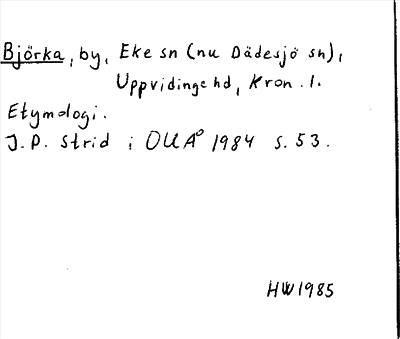 Björka, by, Eke sn (nu Dädesjö sn),
Uppvidinge hd, Kron. l.
Etymologi.
J. P. Strid i OUÅ 1984 s. 53.
HW 1985